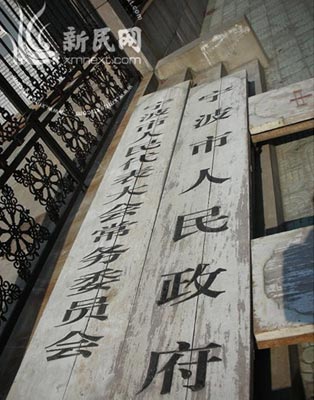 新民网
xmnext.net
宁波市人民政府
宁波市人民代表大会常务委员会